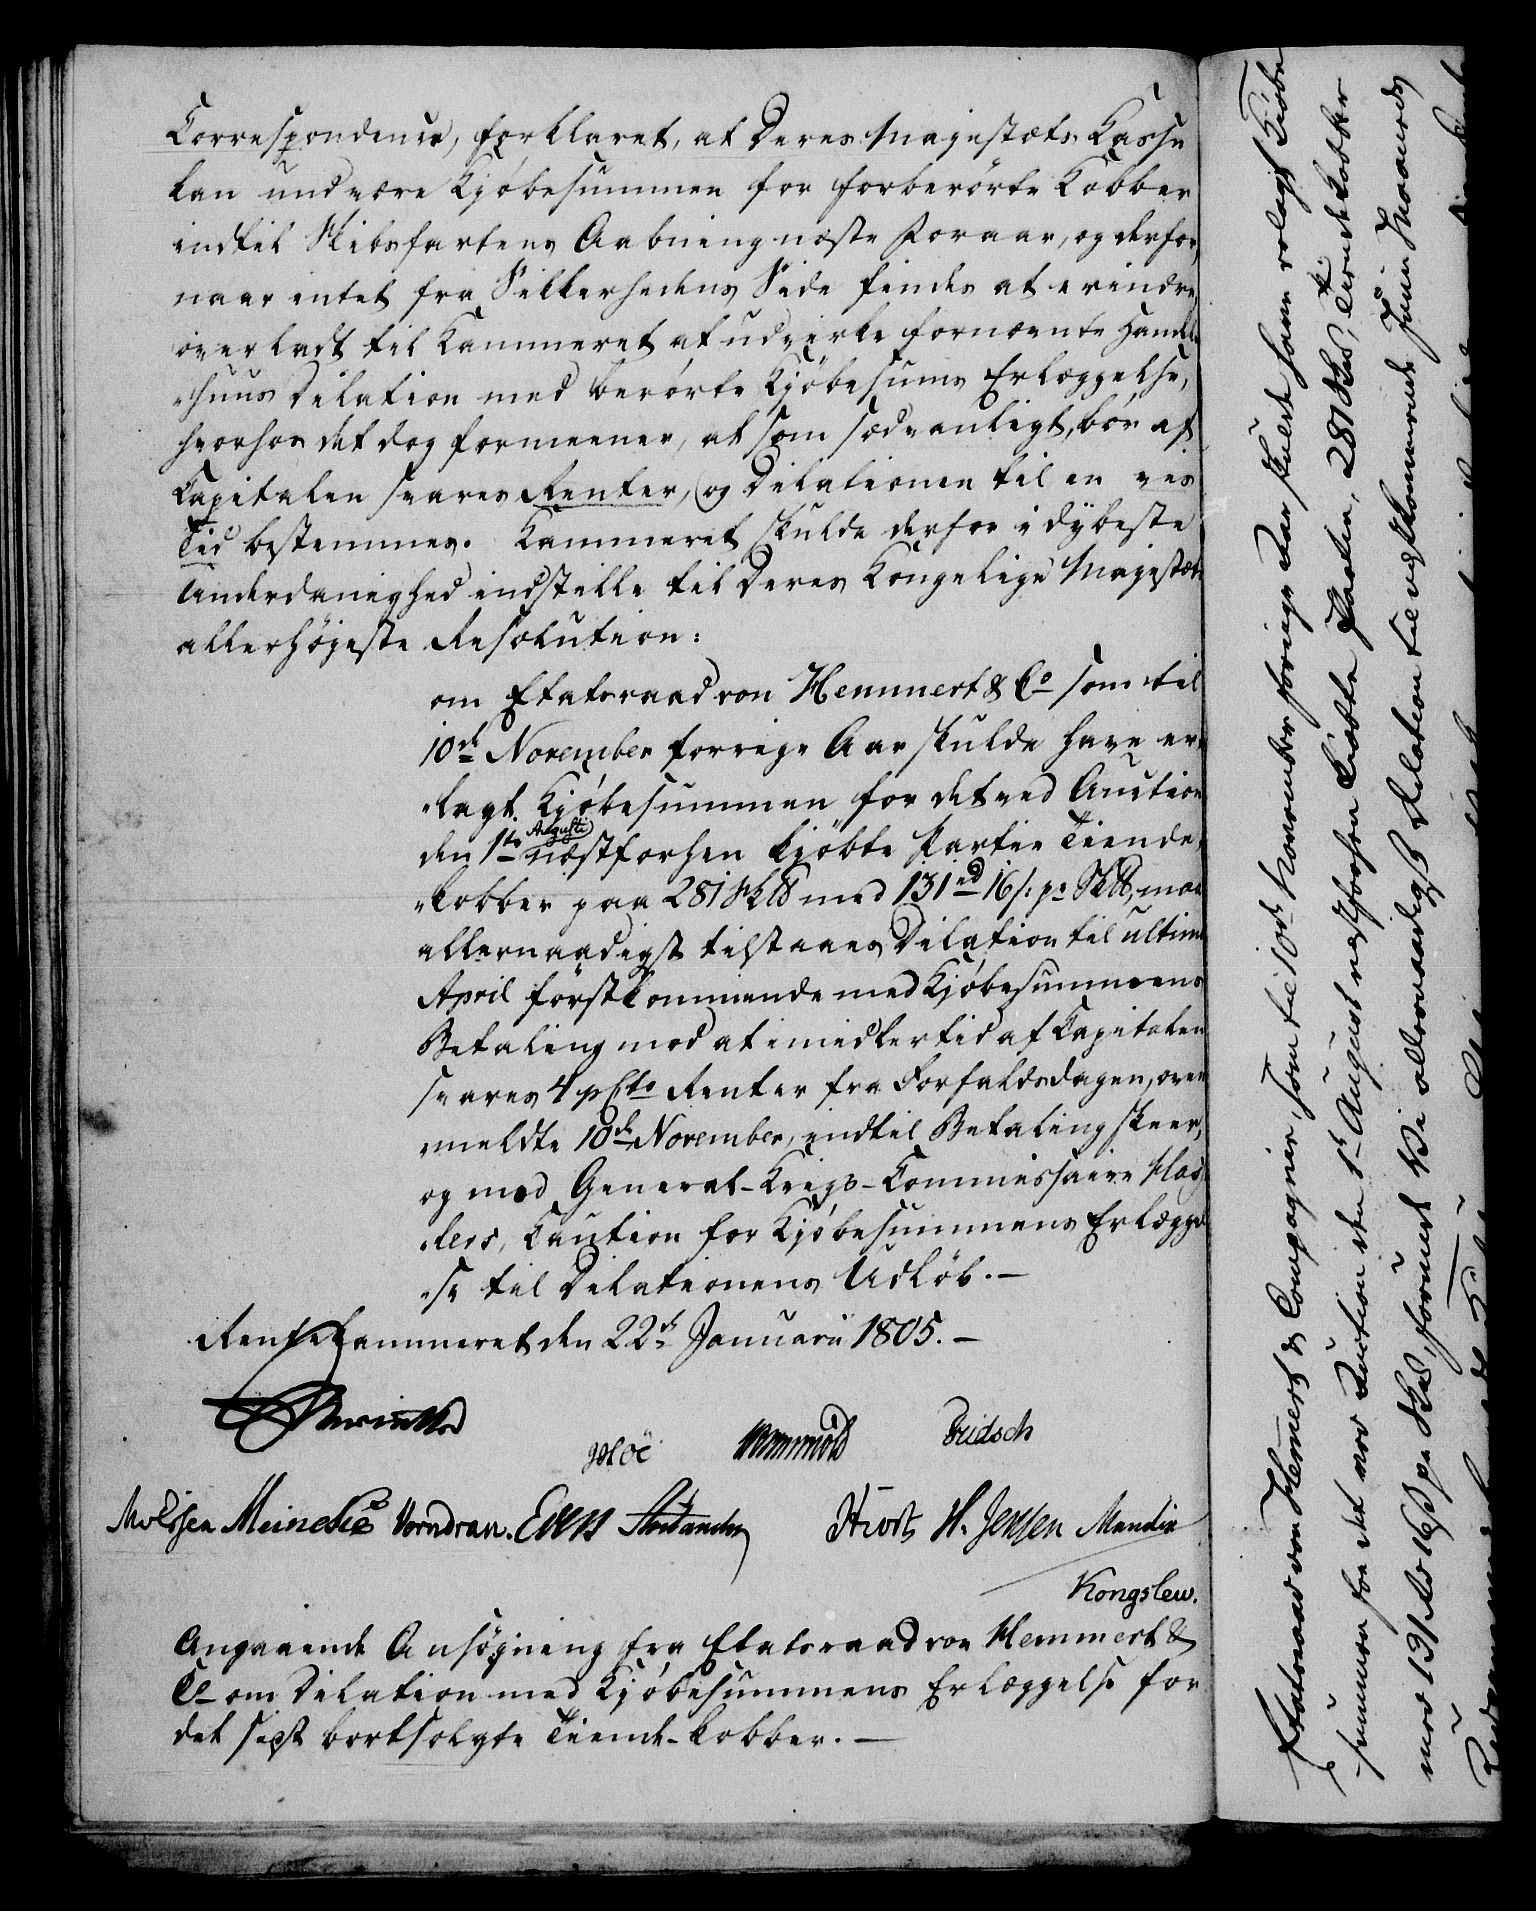 Correspondence, forklaret, at Deres Majestæts Kasse
kan undvære Kjöbesummen for forberörte Kobber
indtil Skibsfartens Aabning næste Foraar, og derfor,
naar intet fra Sikkerhedens Side findes at erindre,
overladt til Kammeret at udvirke fornævnte Handels
-huus Dilation med berörte Kjöbesums Erlæggelse,
hvorhos det dog formeener, at som sædvanligt, bör af
Capitalen svares Renter, og Dilationen til en vis
Tid bestemmes. Kammeret skulde derfor i dybeste
Underdanighed indstille til Deres Kongelige Majestæts
allerhöjeste Resolution:
om Etatsraad von Hemmert & Co som til
10de November forrige Aar skulde have er-
-lagt Kjöbesummen for det ved Auction
den 1te Augusti næstforhen kjöbte Partie Tiende-
-kobber paa 281 Sk℔ med 131 rd 16 s. pr Sk℔, maa
allernaadigst tilstaaes Dilation til ultimo
April förstkommende med Kjöbesummens
Betaling mod at imidlertid af Capitalen
svares 4 pCto Renter fra Forfaldsdagen, oven
meldte 10de November, indtil Betaling skeer,
og mod General-Krigs-Commissaire
Caution for Kjöbesummens Erlæggel
-se til Dilationens Udlöb. —
Rentekammeret den 22de Januarii 1805. —
Hoë Wormskiold Fridsch
Meincke Vorndran. Evers Hiort H. Jensen Mandix
Kongslew.
Angaaende Ansögning fra Etatsraad von Hemmert &
Co om Dilation med Kjöbesummens Erlæggelse for
det sidst bortsolgte Tiende-kobber. —
Etatsraad von Hemmert & Compagnie, som til 10de November forrige Aar skulde have erlagt Kiöbe
-summen for det ved Auction den 1te August næstforhen kiöbte Partie, 281 Sk℔, Tiendekobber
med 131 rd 16 s pr Sk℔, forundt Vi allernaadigst Dilation til næstkommende Junii Maaneds